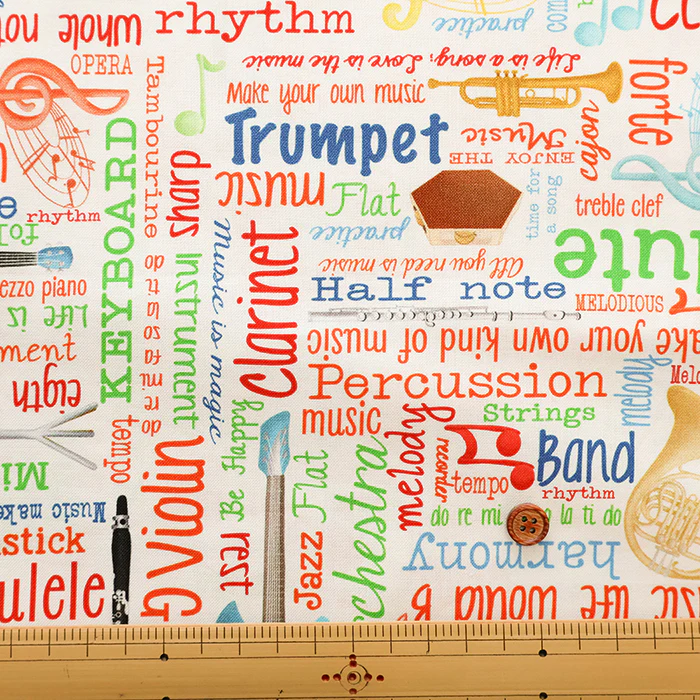 whole not
rhythm
practice
OPERA
Life is a song; Love is the music
Tambourine
Make your own music
forte
Trumpet
cajon
ENJOY THE
Music
KEYBOARD
sharp
music
Flat
time for
a song
treble clef
rhythm
practice
All you need is music
music is magic
Clarinet
Half note
MELODIOUS
mezzo piano
do ti la so fa mi re do
Instrument
Life is
own kind of music
Percussion
melody
eigth
music
Strings
tempo
Be Happy
Flat
melody
recorder
tempo
Band
rhythm
Violin
rest
Jazz
do re mi
la ti do
harmony